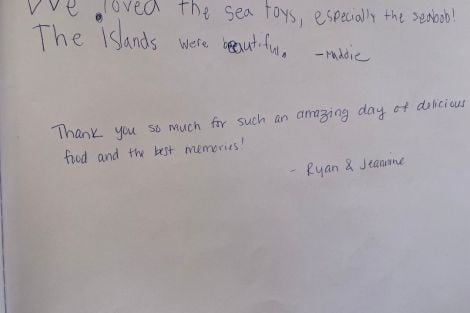 We loved the sea toys, especially the seabob!
The Islands were beautiful. -Maddie
Thank you so much for such an amazing day of delicious
food and the best memories!
- Ryan & Jeannine